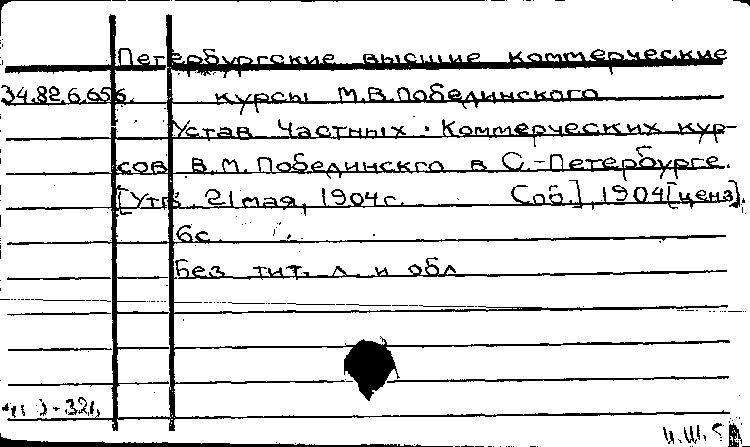 Петербургские высшие коммерческие
34.82.6.656. курсы М.В. Побединского
Устав Частных Коммерческих кур-
сов В.М. Побединскго в С.-Петербурге.
[Утв. 21 мая, 1904 г. Спб.], 1904 [ценз].
6 с.
Без тит. л. и обл